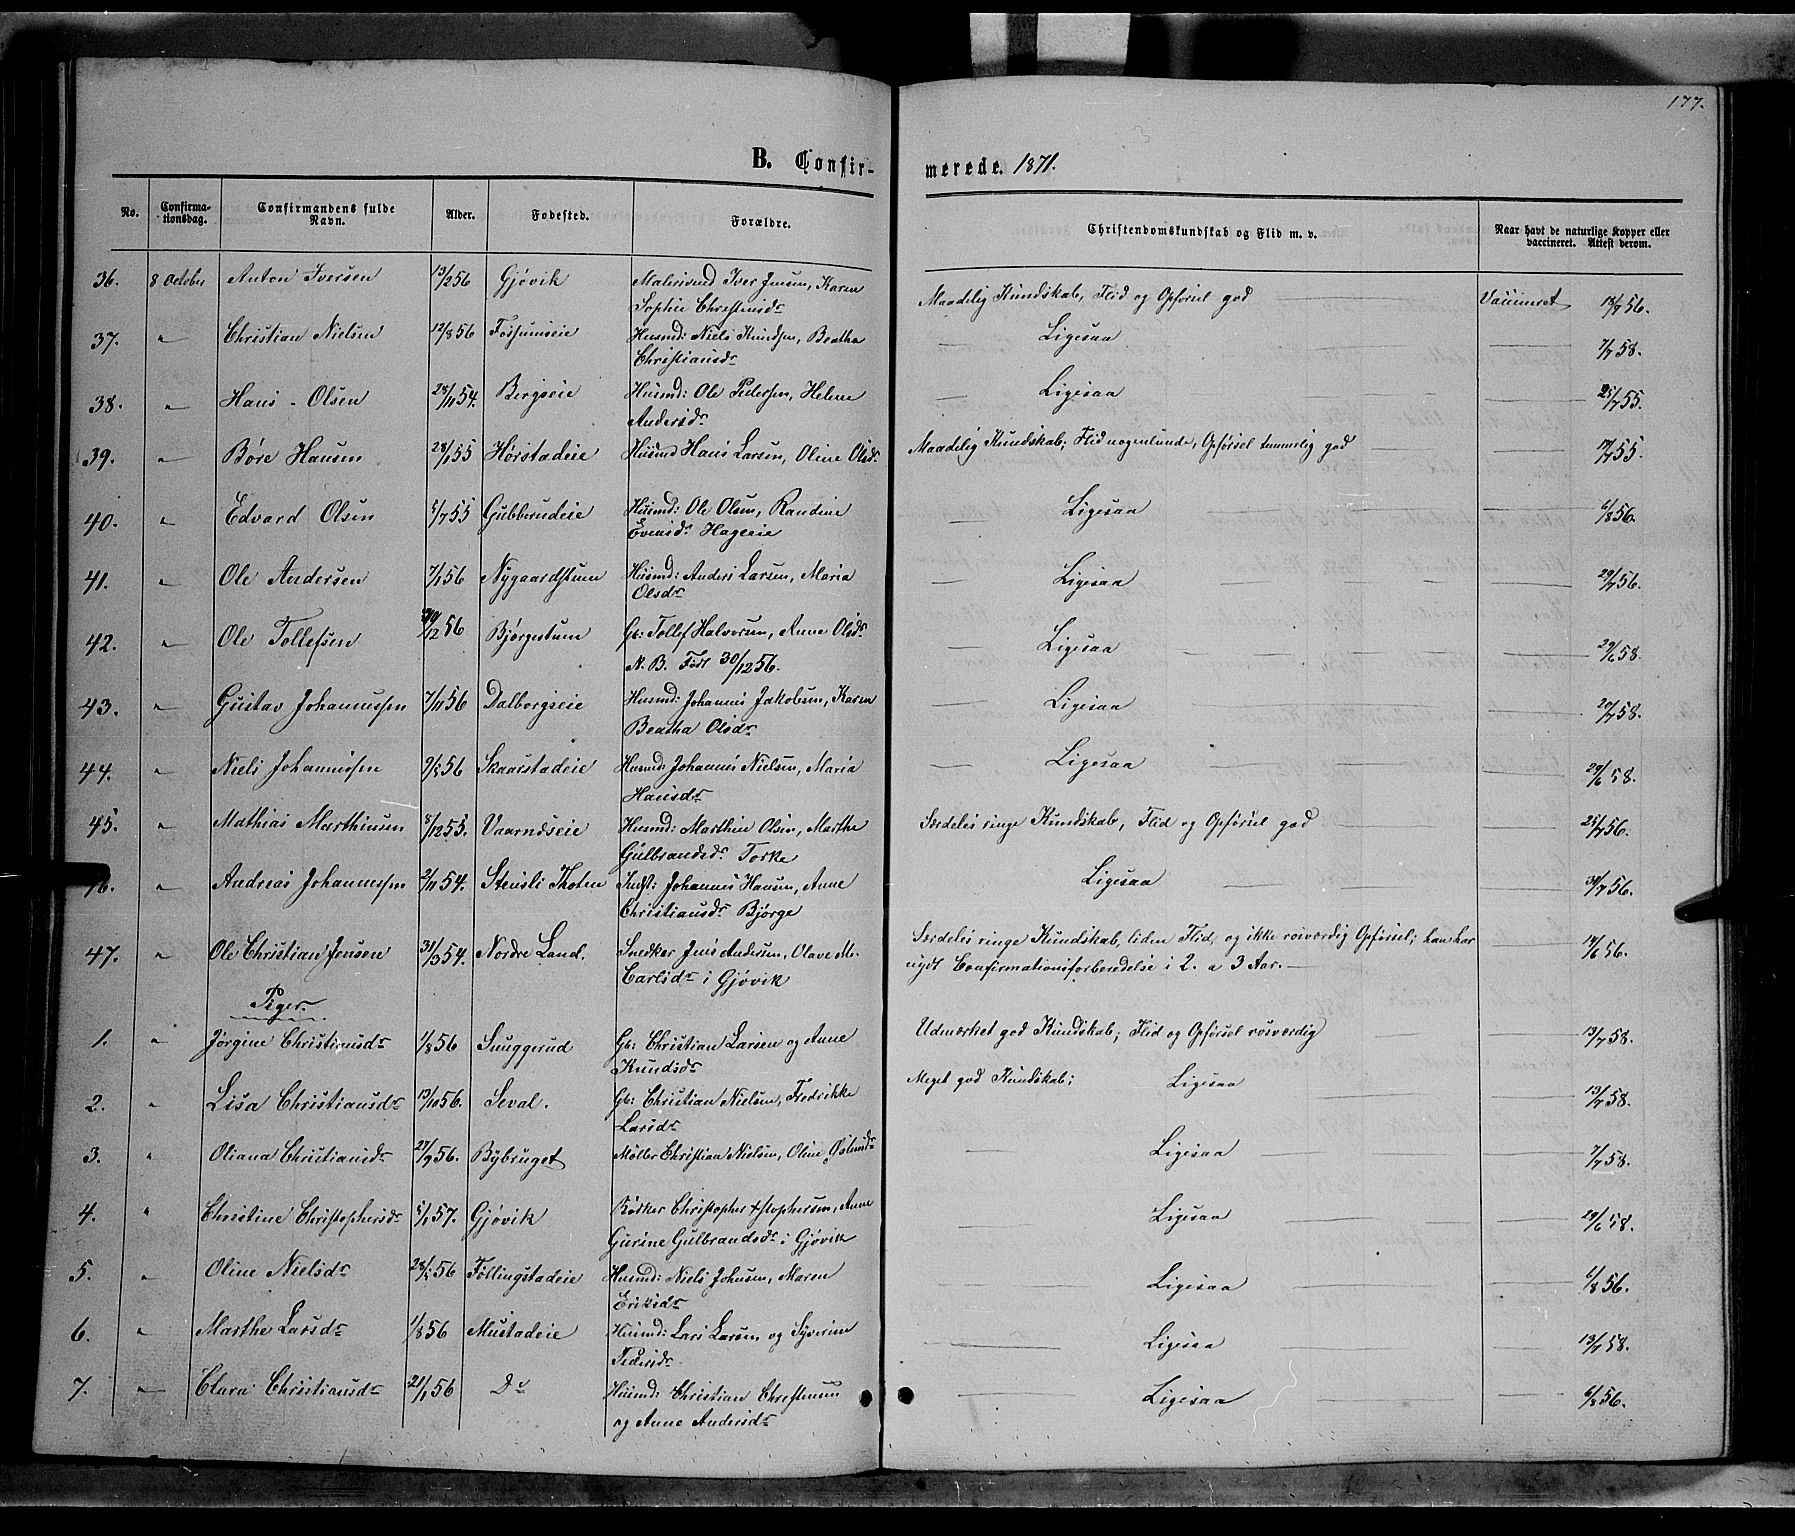 177.
B. Confir-
merede. 1871.
No.
Confirma-
tionsdag.
Confirmandens fulde
Navn.
Alder.
Fødested.
Forældre.
Christendomskundskab og Flid m. v.
Naar havt de naturlige Kopper eller
vaccineret. Attest derom.
36. 8 October Anton Iversen 13/2 56 Gjøvik Malersvend Iver Jensen, Karen Maadelig Kundskab, Flid og Opførsel god — Vaccineret 18/7 56.
Sophie Christiansdr
37. " Christian Nielsen 12/8 56 Fossumseie Husmd: Niels Knudsen, Beatha — Ligesaa — 7/7 58.
Christiansdr
38. " Hans Olsen 28/11 54. Bergseie Husmd: Ole Pedersen, Helene — Ligesaa — 25/7 55.
Andersdr
39. " Børe Hansen 28/1 55 Horstadeie Husmd Hans Larsen, Oline Olsdr Maadelig Kundskab; Flid nogenlunde, Opførsel temmelig god — 17/7 55.
40. " Edvard Olsen 5/7 55 Gubberudeie Husmd: Ole Olsen, Randine — Ligesaa — 6/8 56.
Evensdr Hageeie
41. " Ole Andersen 7/1 56 Nygaardstuen Husmd: Anders Larsen, Maria — Ligesaa — 29/7 56.
Olsdr
42. " Ole Tollefsen 30/12 56 Bjørgestuen Gb: Tollef Halvorsen, Anne Olsdr — Ligesaa — 29/6 58.
N. B. Født 30/12 56.
43. " Gustav Johannessen 7/11 56 Dalborgseie Husmd: Johannes Jakobsen, Karen — Ligesaa — 20/7 58.
Beatha Olsdr
44. " Niels Johannessen 9/5 56 Skaarstadeie Husmd: Johannes Nielsen, Maria — Ligesaa — 29/6 58.
Hansdr
45. " Mathias Marthinsen 8/12 55. Vaarnæseie Husmd: Marthin Olsen, Marthe Særdeles ringe Kundskab, Flid og Opførsel god — 25/7 56.
Gulbrandsdr Torke
46. " Andreas Johannessen 2/11 54. Stensli Thoten Indst: Johannes Hansen, Anne Ligesaa — 30/7 56.
Christiansdr Bjørge
47. " Ole Christian Jensen 31/3 54. Nordre Land. Snedker Jens Andersen, Olave M. Særdeles ringe Kundskab, liden Flid, og ikke rosværdig Opførsel; han har — 14/6 56.
Carlsdr i Gjøvik nydt Confirmationsforberedelse i 2. a 3 Aar. —
Piger.
1. " Jørgine Christiansdr 1/8 56 Snuggerud Gb: Christian Larsen og Anne Udmærket god Kundskab; Flid og Opførsel rosværdig — 13/7 58.
Knudsdr
2. " Lisa Christiansdr 13/10 56. Seval. Gb: Christian Nielsen, Fredrikke Meget god Kundskab; Ligesaa — 13/7 58.
Larsdr
3. " Oliana Christiansdr 27/9 56. Bybruget Møller Christian Nielsen, Oline Østensdr — Ligesaa — 7/7 58.
4. " Christine Christophersdr 5/1 57. Gjøvik Rødker Christopher Xstophersen, Anne — Ligesaa — 29/6 58.
Gurine Gulbrandsdr i Gjøvik
5. " Oline Nielsdr 28/5 56 Føllingstadeie Husmd: Niels Johnsen, Maren — Ligesaa — 6/8 56.
Eriksdr
6. " Marthe Larsdr 1/8 56 Mustadeie Husmd: Lars Larsen og Syverine — Ligesaa — 13/7 58.
Pedersdr
7. — Clara Christiansdr 21/1 56 Do Husmd: Christian Christensen — Ligesaa — 6/8 56.
og Anne Andersdr